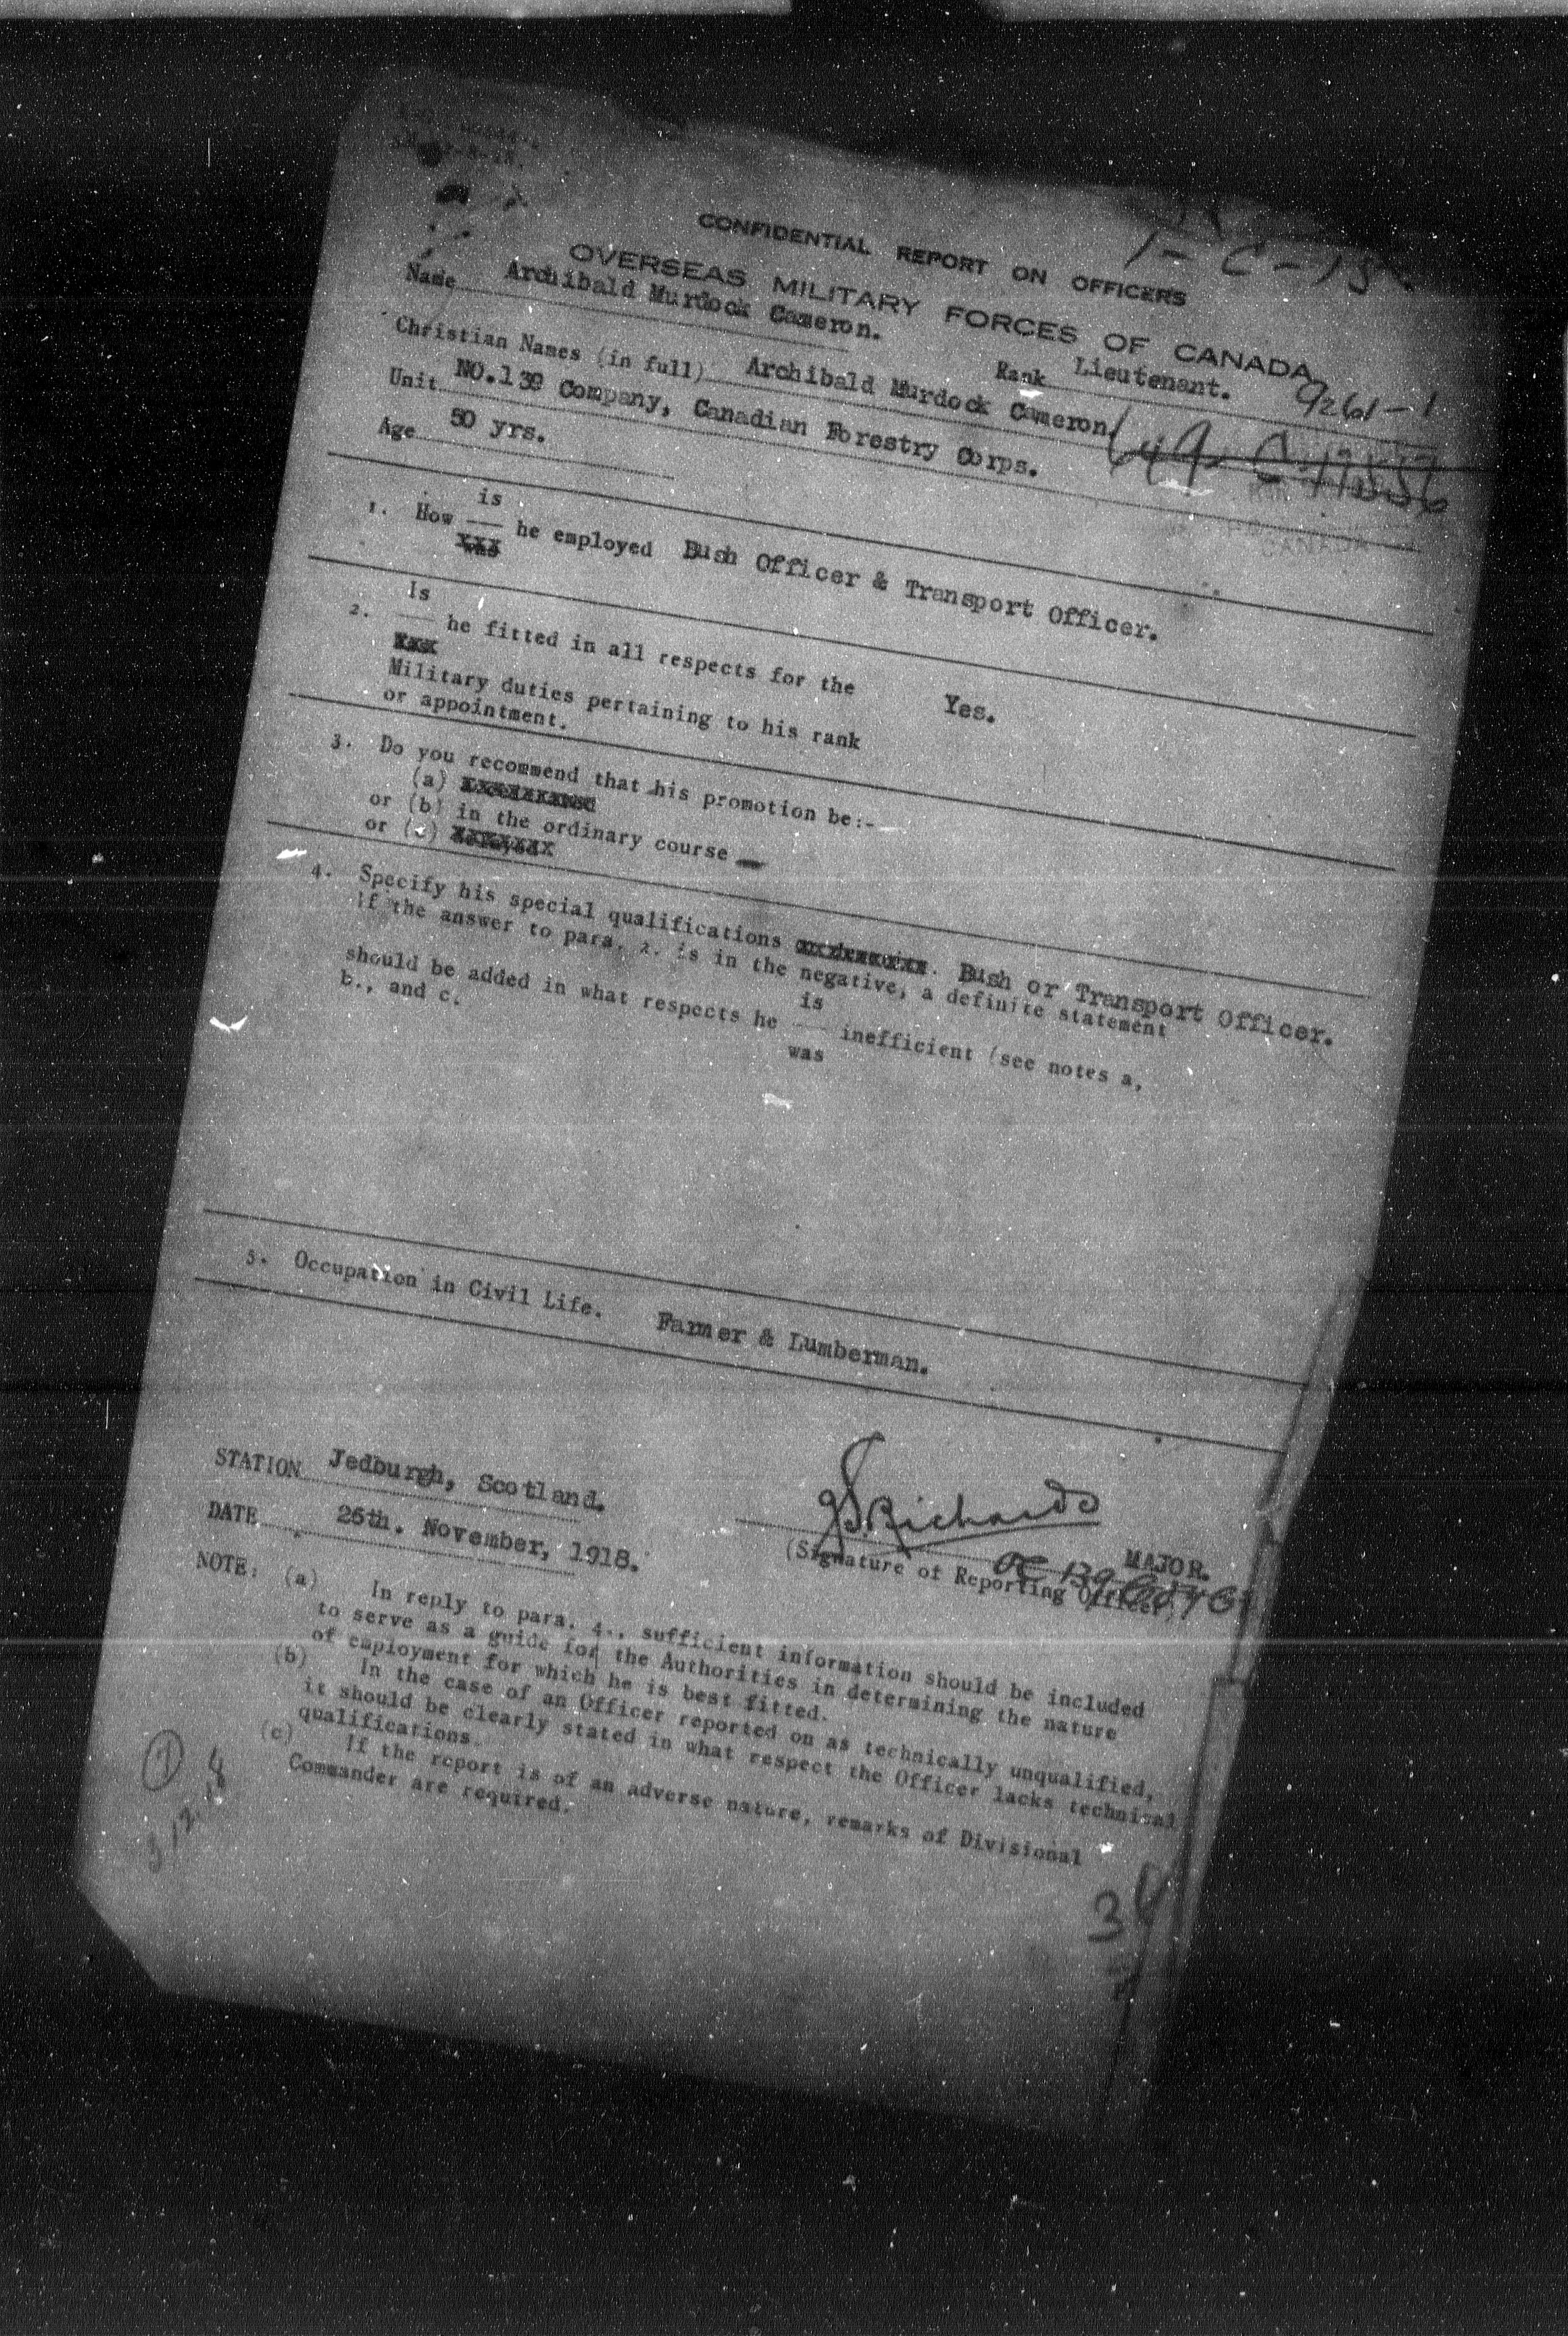 1 - C - 15
CONFIDENTIAL REPORT ON OFFICERS
OVERSEAS MILITARY FORCES OF CANADA
Name Archibald Murdock Cameron. Rank Lieutenant.
9261-1
Christian Names (in full) Archibald Murdock Cameron.
649-C-17556
Unit NO.139 Company, Canadian Forestry Corps.
CANADA
Age 50 yrs.
is
1. How he employed Bush Officer & Transport Officer.
was
Is
2. he fitted in all respects for the
xxx
Military duties pertaining to his rank Yes.
or appointment.
3. Do you recommend that his promotion be:-
(a)
or (b) in the ordinary course
or (c) delayed
4. Specify his special qualifications Bush or Transport Officer.
If the answer to para. 2. is in the negative, a definite statement
is
should be added in what respects he inefficient (see notes a,
was
b., and c.
5. Occupation in Civil Life. Farmer & Lumberman.
STATION Jedburgh, Scotland.
DATE 26th. November, 1918.
Richards
MAJOR.
(Signature of Reporting Officer)
OC 139 Coy
NOTE: (a) In reply to para. 4., sufficient information should be included
to serve as a guide for the Authorities in determining the nature
of employment for which he is best fitted.
(b) In the case of an Officer reported on as technically unqualified,
it should be clearly stated in what respect the Officer lacks technical
qualifications.
(c) If the report is of an adverse nature, remarks of Divisional
Commander are required.
3.12.18
34